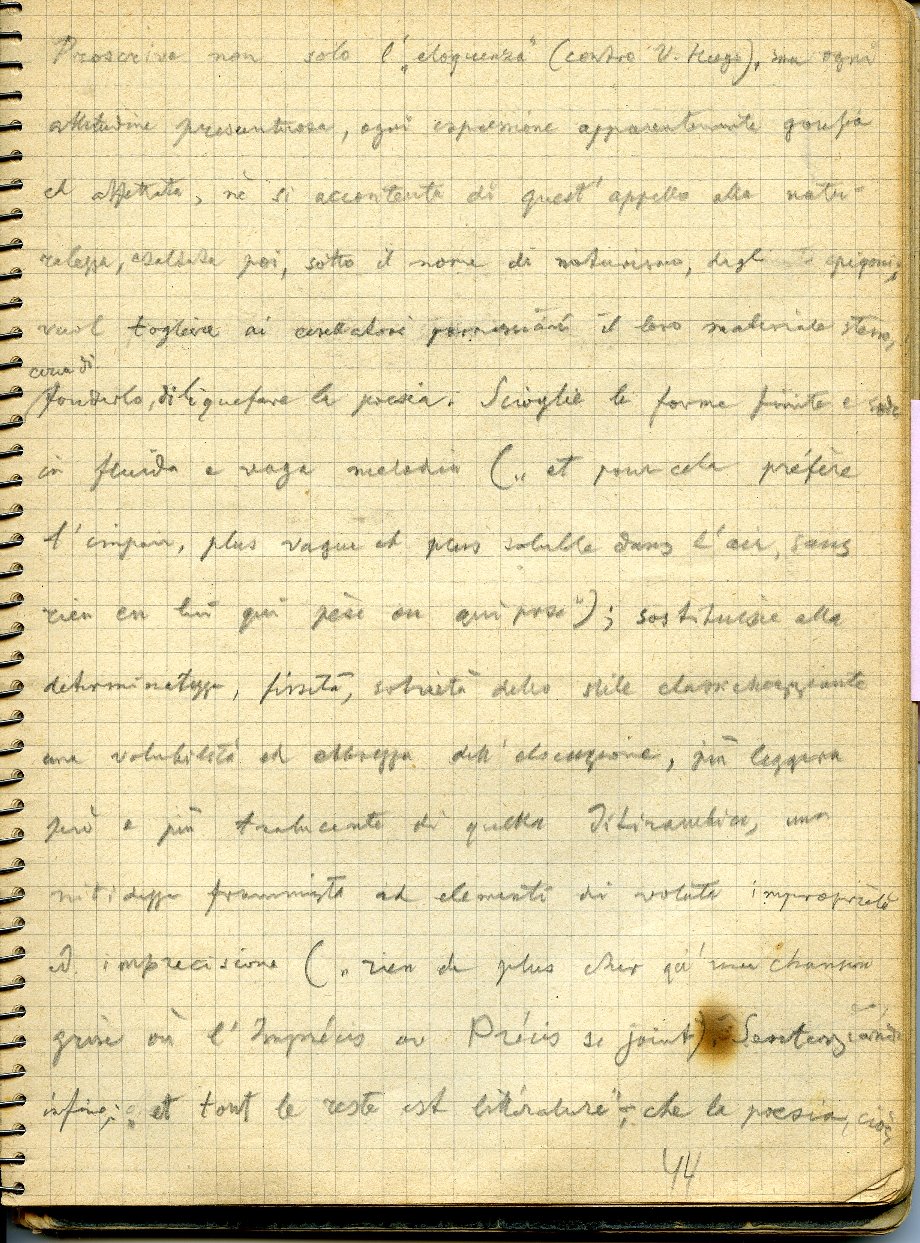 Proscrive non solo l'„eloquenza" (contro V. Hugo), ma ogni
attitudine presuntuosa, ogni espressione apparentemente gonfia
ed affettata, nè si accontenta di quest'appello alla natu-
ralezza, esaltata poi, sotto il nome di naturismo, dagli epigoni;
vuol togliere ai cesellatori parnassiani il loro materiale stesso,
cerca di
fonderlo, di liquefare la poesia. Scioglie le forme finite e sode
in fluida e vaga melodia („ et pour cela préfère
l'impair, plus vague et plus soluble dans l'air, sans
rien en lui qui pèse ou qui pose"); sostituisce alla
determinatezza, fissità, sobrietà dello stile classicheggiante
una volubilità ed ebbrezza dell'elocuzione, più leggera
però e più tralucente di quella ditirambica, una
nitidezza frammista ad elementi di voluta improprietà
ed imprecisione („ rien de plus cher qu'une chanson
grise où l'Imprécis au Précis se joint). Sentenziando
infine: „et tout le reste est littérature"; che la poesia, cioè,
44